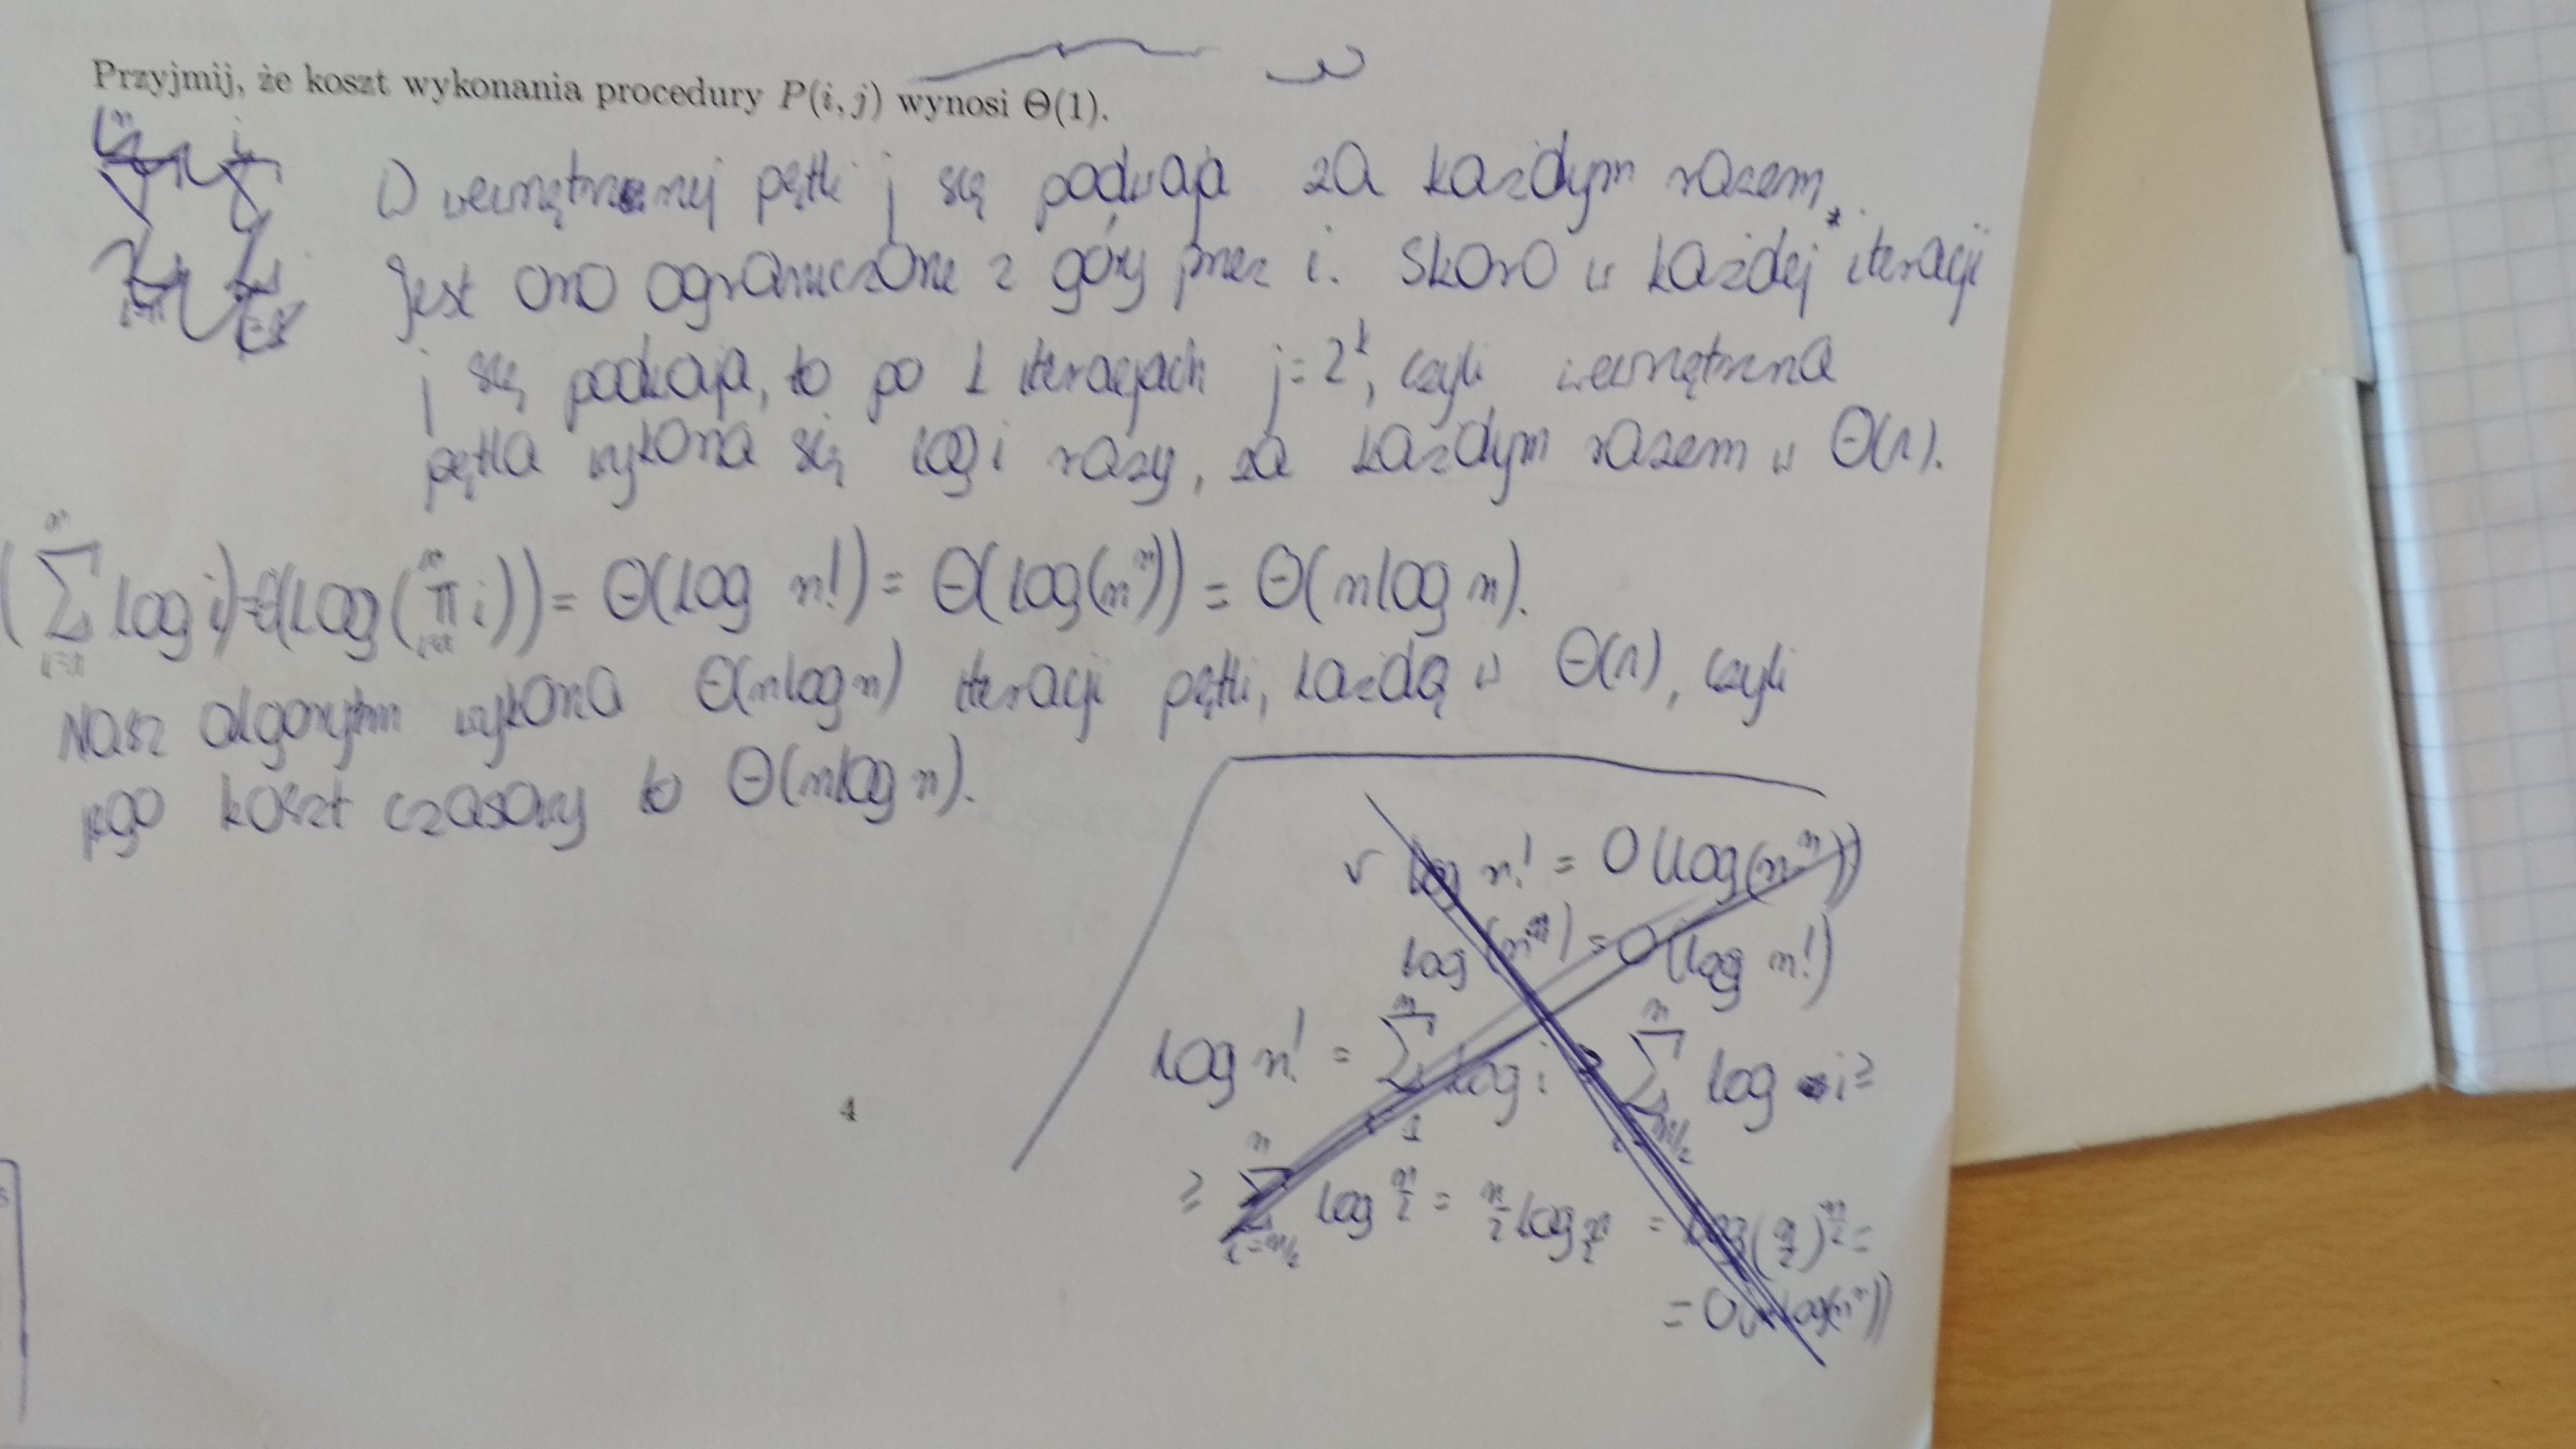 Przyjmij, że koszt wykonania procedury P(i, j) wynosi Θ(1).
W wewnętrznej pętli j się podwaja za każdym razem.
Jest ono ograniczone z góry przez i. Skoro w każdej iteracji
j się podwaja, to po k iteracjach j=2^k, czyli wewnętrzna
pętla wykona się log i razy, za każdym razem w Θ(1).
(∑_{i=1}^{n} log i) = Θ(log(∏_{i=1}^{n} i)) = Θ(log n!) = Θ(log(n^n)) = Θ(n log n).
Nasz algorytm wykona Θ(n log n) iteracji pętli, każdą w Θ(1), czyli
jego koszt czasowy to Θ(n log n).
v log n! = O(log(n^n))
log(n^n) = O(log n!)
log n! = ∑_{i=1}^{n} log i ≥ ∑_{i=n/2}^{n} log i ≥
≥ ∑_{i=n/2}^{n} log n/2 = n/2 log n/2 = log(n/2)^{n/2} =
= O(log(n^n))
4